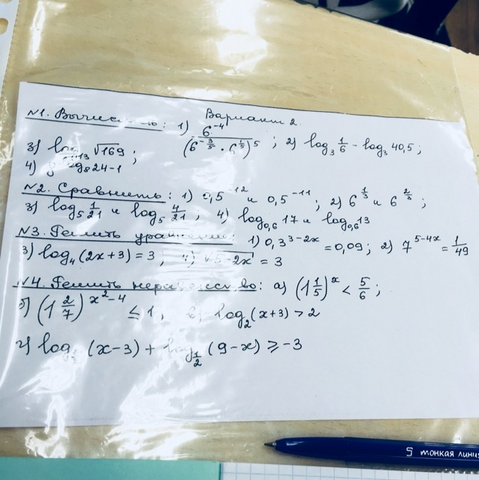 Вариант 2.
№1. Вычислить: 1) 6⁻⁴/(6^(-3/5) · 6^(1/5))⁵ ; 2) log₃ 1/6 - log₃ 40,5;
3) log₁₃ √169;
4) 24-1
№2. Сравнить: 1) 0,5⁻¹² и 0,5⁻¹¹; 2) 6^(1/3) и 6^(2/3);
3) log₅ 1/21 и log₅ 4/21; 4) log₀,₆ 17 и log₀,₆ 13
№3. Решить уравнения: 1) 0,3^(3-2x) = 0,09; 2) 7^(5-4x) = 1/49
3) log₄(2x+3) = 3; 4) -2x = 3
№4. Решить неравенство: а) (1 1/5)^x < 5/6;
б) (1 2/7)^(x²-4) ≤ 1, в) log₂(x+3) > 2
г) log (x-3) + log_(1/2) (9-x) ≥ -3
тонкая линия